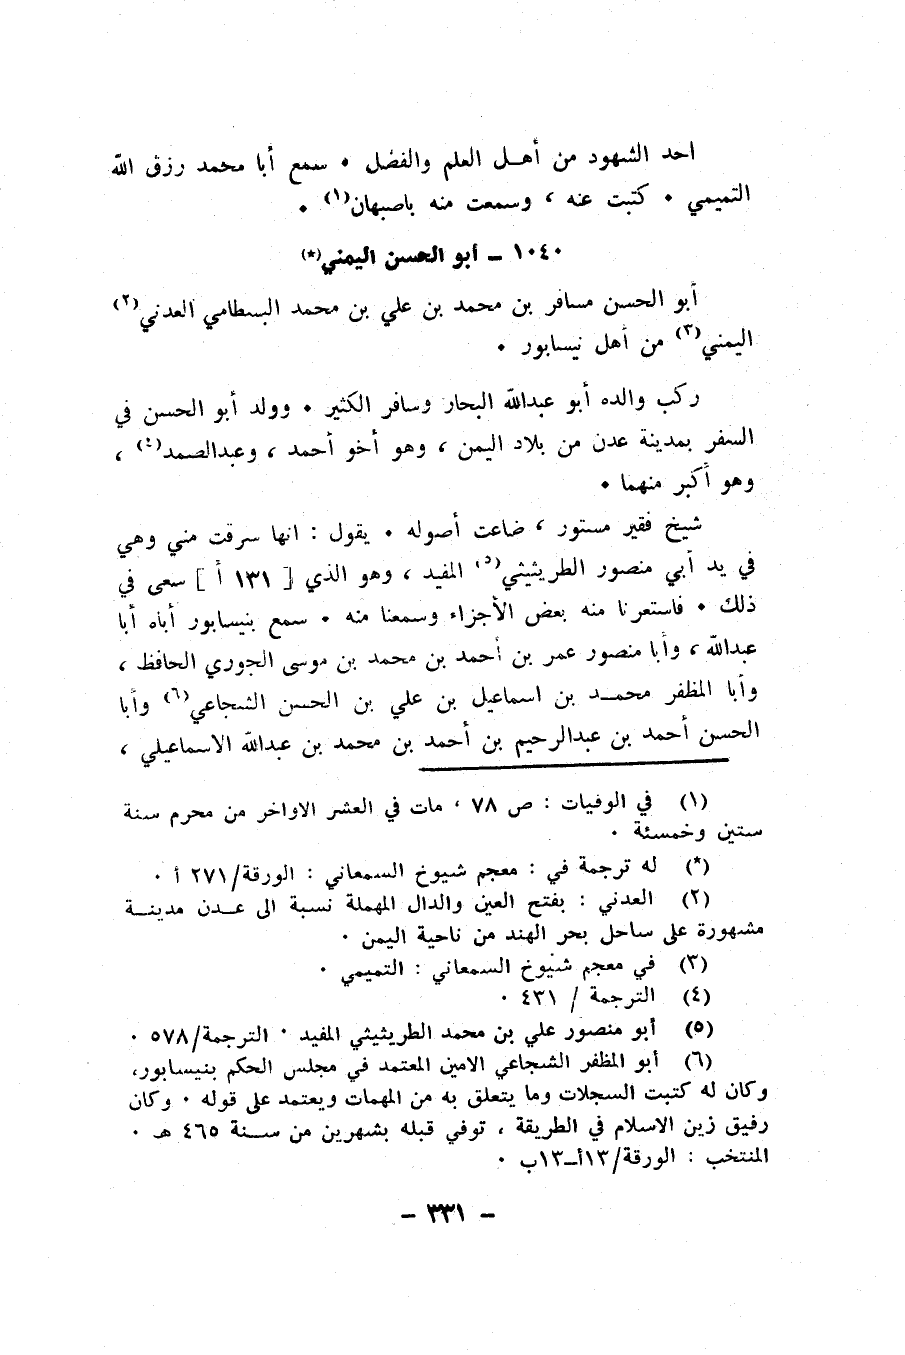 احد الشهود من أهـل العلم والفضل • سمع أبا محمد رزق الله
التميمي • كتبت عنه ، وسمعت منه باصبهان(١) •
١٠٤٠ ـ أبو الحسن اليمني(*)
أبو الحسن مسافر بن محمد بن علي بن محمد البسطامي العدني(٢)
اليمني(٣) من أهل نيسابور •
ركب والده أبو عبدالله البحار وسافر الكثير • وولد أبو الحسن في
السفر بمدينة عدن من بلاد اليمن ، وهو أخو أحمد ، وعبدالصمد(٤) ،
وهو أكبر منهما •
شيخ فقير مستور ، ضاعت أصوله • يقول : انها سرقت مني وهي
في يد أبي منصور الطريثيثي(٥) المفيد ، وهو الذي [ ١٣١ أ ] سعى في
ذلك • فاستعرنا منه بعض الأجزاء وسمعنا منه • سمع بنيسابور أباه أبا
عبدالله ، وأبا منصور عمر بن أحمد بن محمد بن موسى الجوري الحافظ ،
وأبا المظفر محمـد بن اسماعيل بن علي بن الحسن الشجاعي(٦) وأبا
الحسن أحمد بن عبدالرحيم بن أحمد بن محمد بن عبدالله الاسماعيلي ،
(١) في الوفيات : ص ٧٨ ، مات في العشر الاواخر من محرم سنة
ستين وخمسئة •
(*) له ترجمة في : معجم شيوخ السمعاني : الورقة/٢٧١ أ •
(٢) العدني : بفتح العين والدال المهملة نسبة الى عـدن مدينـة
مشهورة على ساحل بحر الهند من ناحية اليمن •
(٣) في معجم شيوخ السمعاني : التميمي •
(٤) الترجمة / ٤٣١ •
(٥) أبو منصور علي بن محمد الطريثيثي المفيد • الترجمة/٥٧٨ •
(٦) أبو المظفر الشجاعي الامين المعتمد في مجلس الحكم بنيسابور،
وكان له كتبت السجلات وما يتعلق به من المهمات ويعتمد على قوله • وكان
رفيق زين الاسلام في الطريقة ، توفي قبله بشهرين من سـنة ٤٦٥ هـ •
المنتخب : الورقة/١٣أـ١٣ب •
ـ ٣٣١ ـ